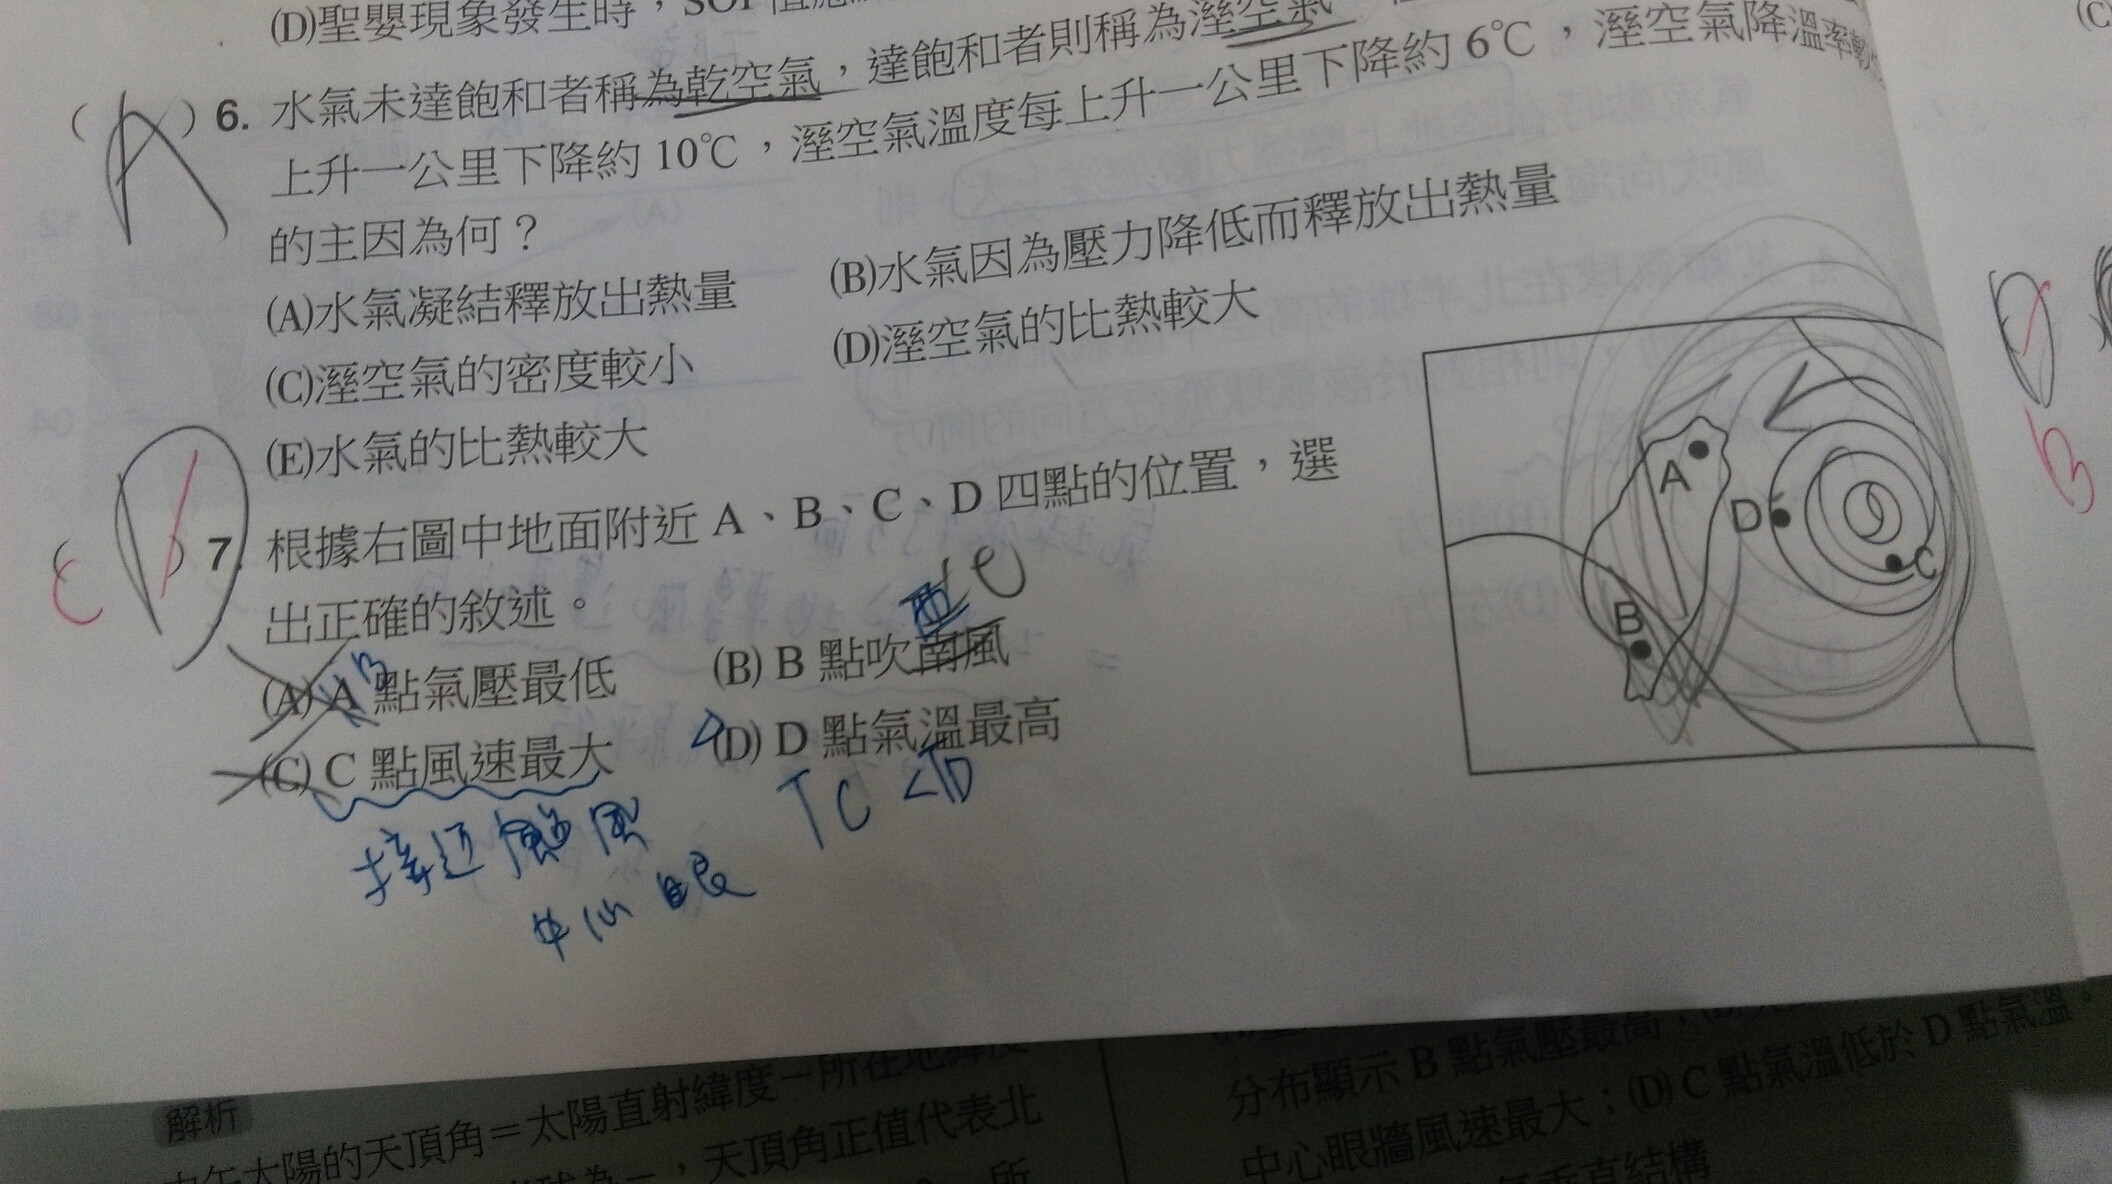 (D)聖嬰現象發生時，SOI 值應
(A) 6. 水氣未達飽和者稱為乾空氣，達飽和者則稱為溼空氣
上升一公里下降約 10℃，溼空氣溫度每上升一公里下降約 6℃，溼空氣降溫率較
的主因為何？
(A)水氣凝結釋放出熱量
(B)水氣因為壓力降低而釋放出熱量
(C)溼空氣的密度較小
(D)溼空氣的比熱較大
(E)水氣的比熱較大
7. 根據右圖中地面附近 A、B、C、D 四點的位置，選
出正確的敘述。
(A) A 點氣壓最低
(B) B 點吹南風
西
(C) C 點風速最大
(D) D 點氣溫最高
接近颱風
中心眼
TC < TD
A
B
C
D
C
B
解析
中午太陽的天頂角＝太陽直射緯度－所在地緯度
，天頂角正值代表北
所
分布顯示 B 點氣壓最高
中心眼牆風速最大；(D) C 點氣溫低於 D 點氣溫。
垂直結構